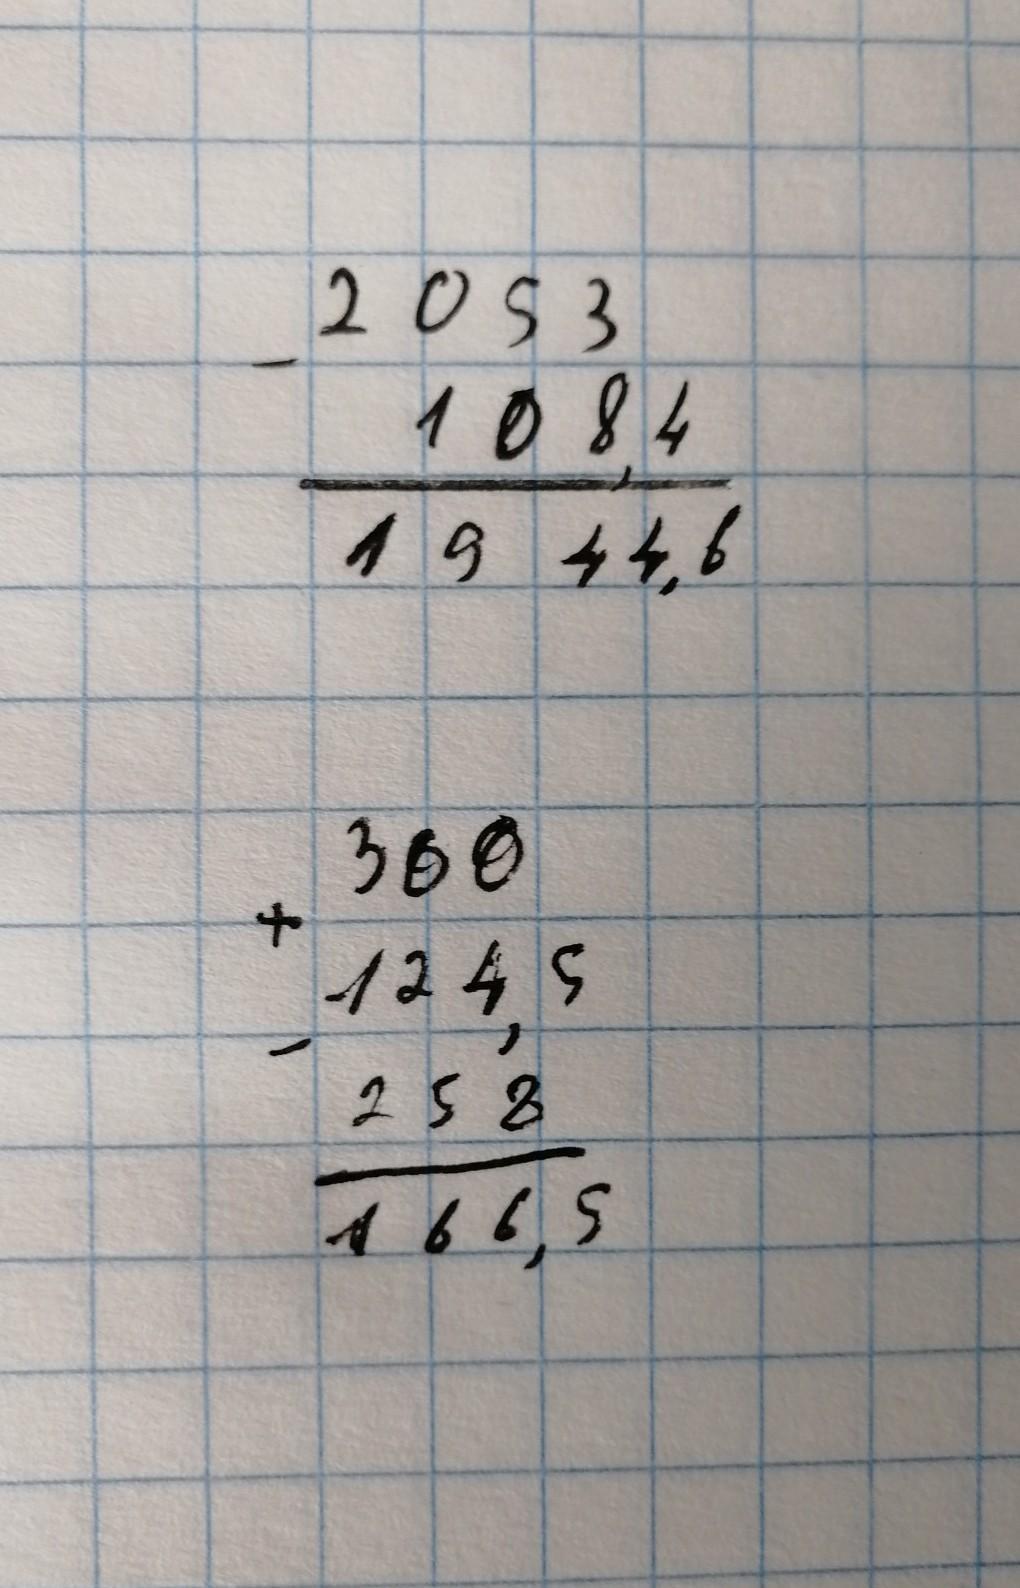 2053
-
108,4
1944,6
300
+
124,5
-
258
166,5